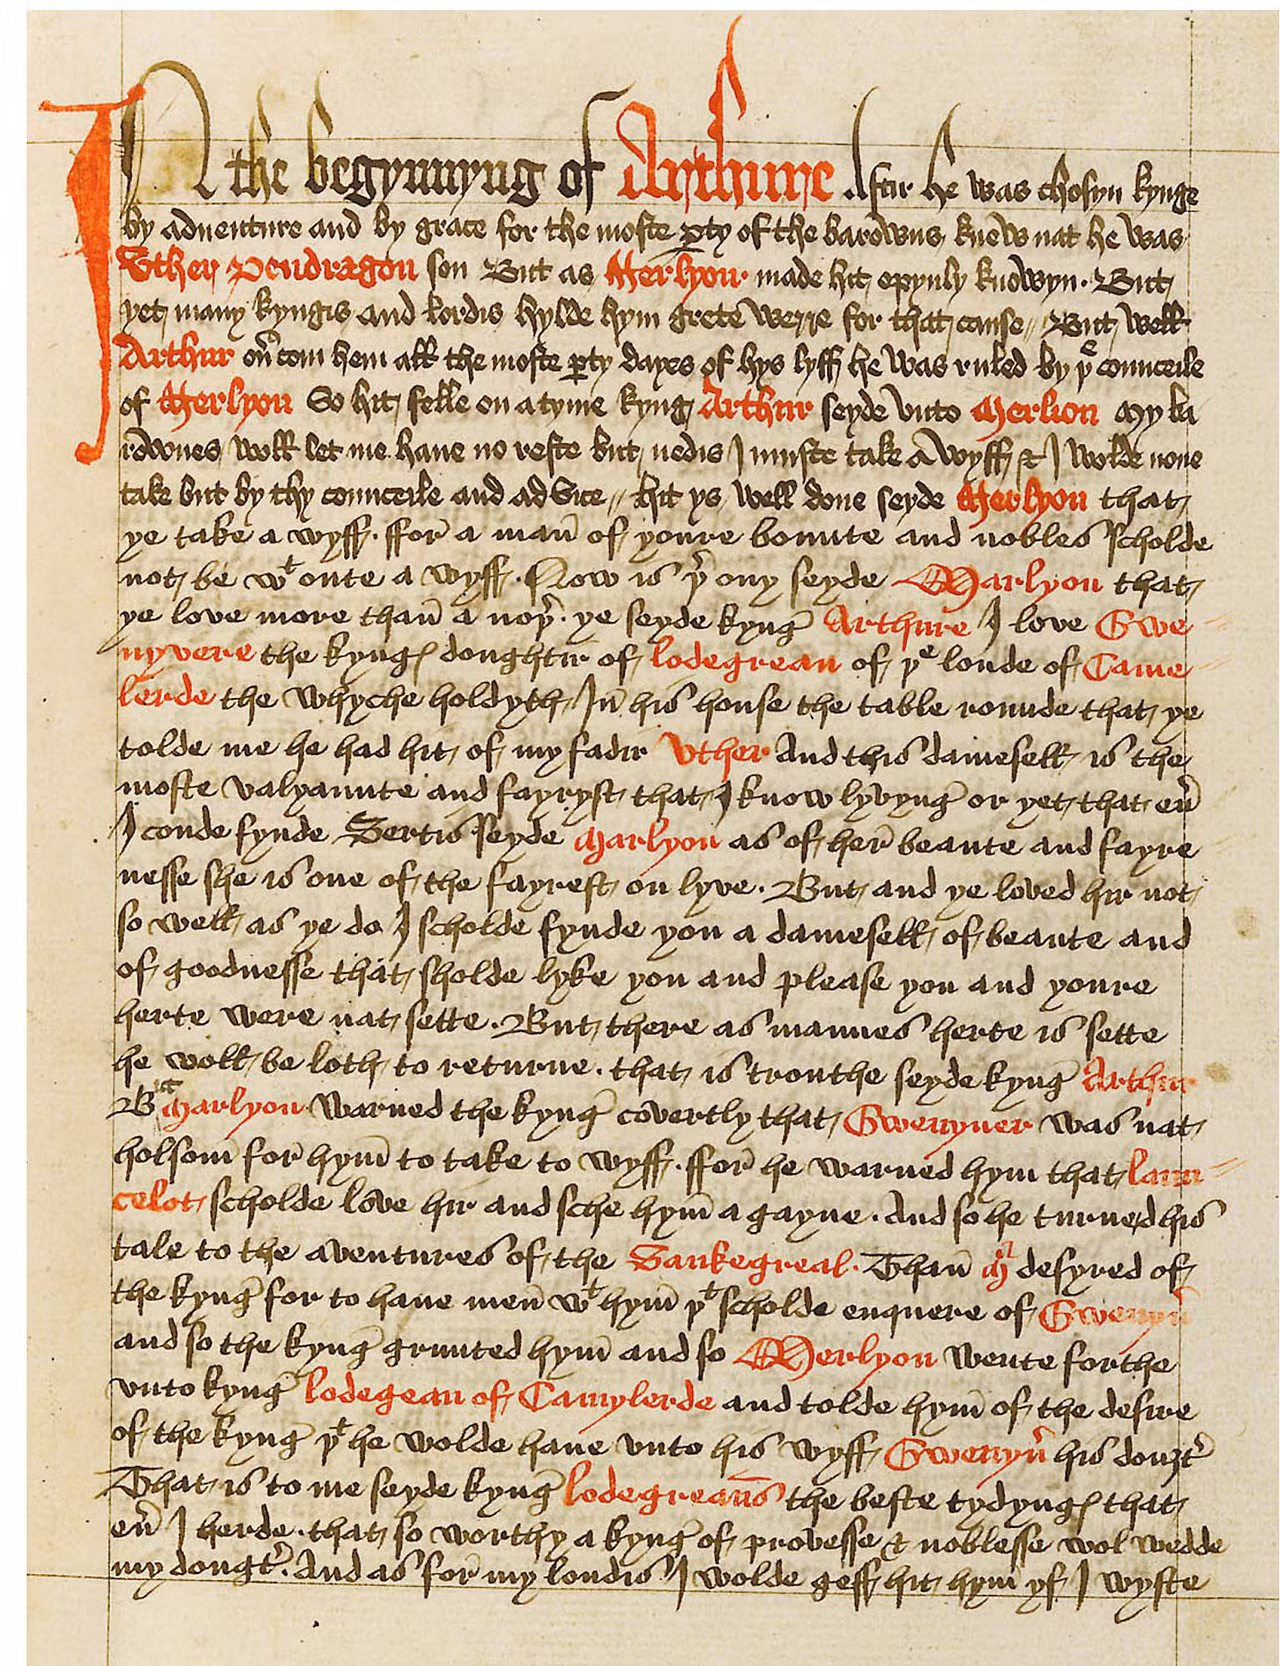 IN the begynnyng of Arthure Aftir he was chosyn kynge
by adventure and by grace for the moste ꝑty of the barowns knew nat he was
Vther Pendragon son But as Merlyon made hit opynly knowyn. But
yet many kyngis and lordis hylde hym grete werre for that cause // But well
Arthur ou̕com hem all the moste ꝑty dayes of hys lyff he was ruled by þͤ counceile
of Merlyon So hit felle on a tyme kyng Arthur seyde vnto Merlion My ba
rownes woll let me have no reste but nedis I muste take a wyff & I wolde none
take but by thy counceile and advice // hit ys well done seyde Merlyon that
ye take a wyff. ffor a man̄ of youre bounte and nobles scholde
not be wᵗ oute a wyff. Now is þ̕ ony seyde Marlyon that
ye love more than̄ a noþ̕. ye seyde kynḡ Arthure I love Gwe=
nyvere the kyngꝭ doughtir of lodegrean of þͤ londe of Came=
lerde the whyche holdyth In̄ his house the table rounde that ye
tolde me he had hit of my fadir Vther And this damesell is the
moste valyaunte and fayryst that I know lyvynḡ or yet that eu̕
I coude fynde Sertis seyde Marlyon as of her̄ beaute and fayre
nesse she is one of the fayrest on lyve. But and ye loved hir not
so well as ye do I scholde fynde you a damesell of beaute and
of goodnesse that sholde lyke you and please you and youre
herte were nat sette. But there as mannes herte is sette
he woll be loth to returne. that is trouthe seyde kynḡ Arthur
But Marlyon warned the kynḡ covertly that Gwenyver was nat
holsom̄ for̄ hym̄ to take to wyff. ffor̄ he warned hym that laun=
celot scholde love hir and sche hym̄ a gayne. And so he turned his
tale to the aventures of the Sankegreal. Than̄ M̕ desyred of
the kynḡ for to have men̄ wᵗ hym̄ þᵗ scholde enquere of Gwenyu̕
and so the kynḡ grunted hym̄ and so Merlyon wente forthe
vnto kynḡ lodegean of Camylerde and tolde hym̄ of the desire
of the kynḡ þᵗ he wolde have vnto his wyff Gwenyu̕ his douȝt̕
That is to me seyde kynḡ lodegreans the beste tydyngꝭ that
eu̕ I herde. that so worthy a kynḡ of provesse & noblesse wol wedde
my dougt̕. And as for̄ my londis I wolde geff hit hym yf I wyste